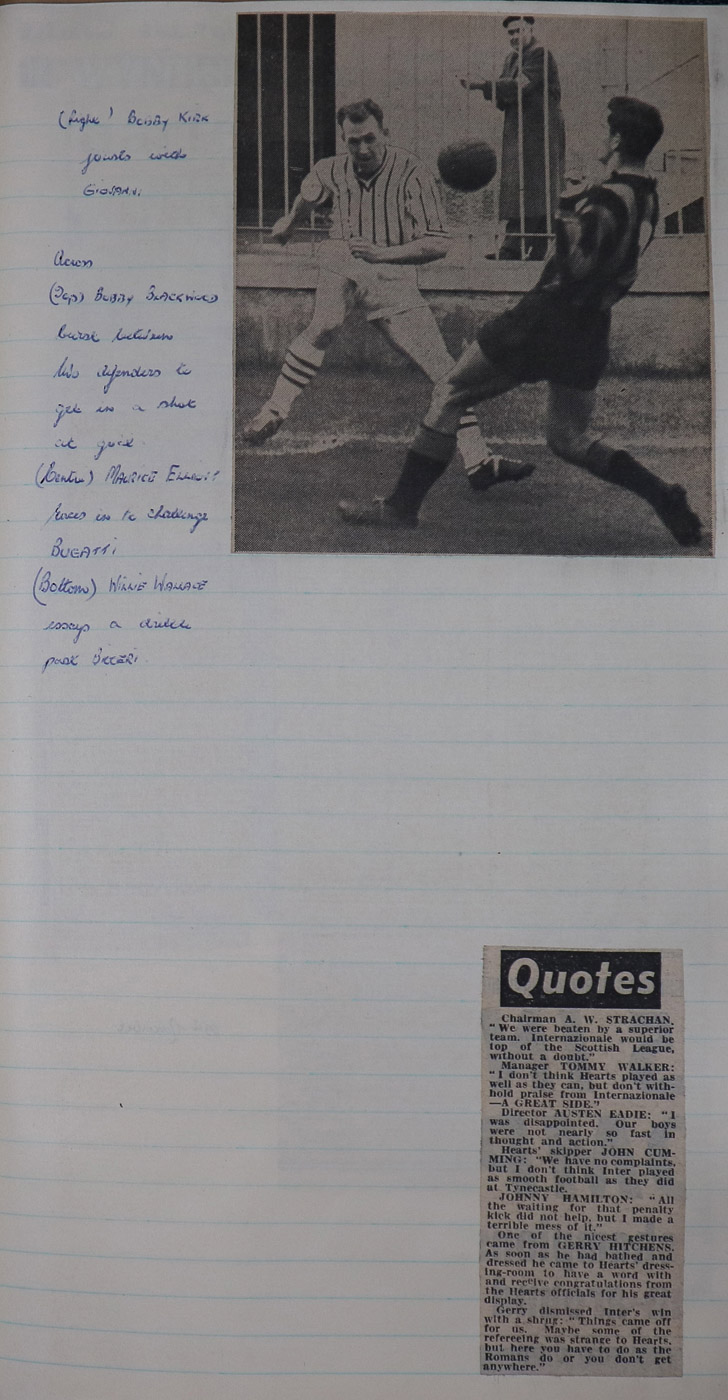 (Right) BOBBY KIRK
jousts with
GIOVANNI
Across
(Top) BOBBY BLACKWOOD
burst between
two defenders to
get in a shot
at goal.
(Centre) MAURICE ELLIOTT
races in to challenge
BUGATTI
(Bottom) WILLIE WALLACE
essays a dribble
past BICCERI.
Quotes
Chairman A. W. STRACHAN.
"We were beaten by a superior
team. Internazionale would be
top of the Scottish League,
without a doubt."
Manager TOMMY WALKER:
"I don't think Hearts played as
well as they can, but don't with-
hold praise from Internazionale
—A GREAT SIDE."
Director AUSTEN EADIE: "I
was disappointed. Our boys
were not nearly so fast in
thought and action."
Hearts' skipper JOHN CUM-
MING: "We have no complaints,
but I don't think Inter played
as smooth football as they did
at Tynecastle.
JOHNNY HAMILTON: "All
the waiting for that penalty
kick did not help, but I made a
terrible mess of it."
One of the nicest gestures
came from GERRY HITCHENS.
As soon as he had bathed and
dressed he came to Hearts' dress-
ing-room to have a word with
and receive congratulations from
the Hearts officials for his great
display.
Gerry dismissed Inter's win
with a shrug: "Things came off
for us. Maybe some of the
refereeing was strange to Hearts,
but here you have to do as the
Romans do or you don't get
anywhere."